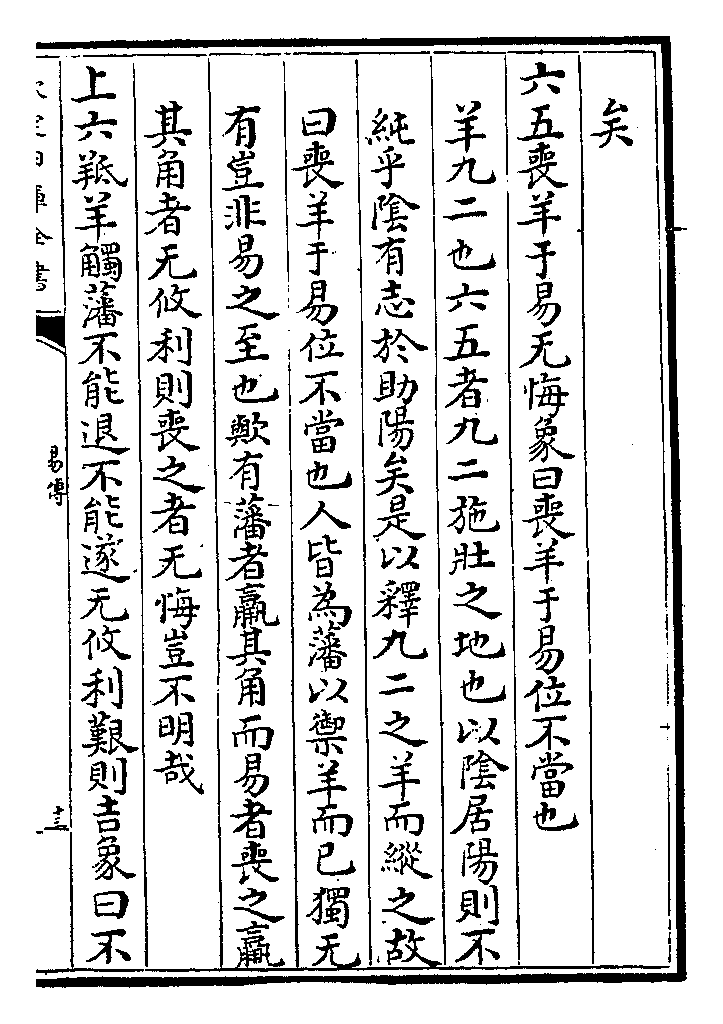 矣
六五喪羊于易无悔象曰喪羊于易位不當也
羊九二也六五者九二施壯之地也以陰居陽則不
純乎陰有志於助陽矣是以釋九二之羊而縱之故
曰喪羊于易位不當也人皆為藩以禦羊而已獨无
有豈非易之至也歟有藩者羸其角而易者喪之羸
其角者无攸利則喪之者无悔豈不明哉
上六羝羊觸藩不能退不能遂无攸利艱則吉象曰不
欽定四庫全書
易傳
十三